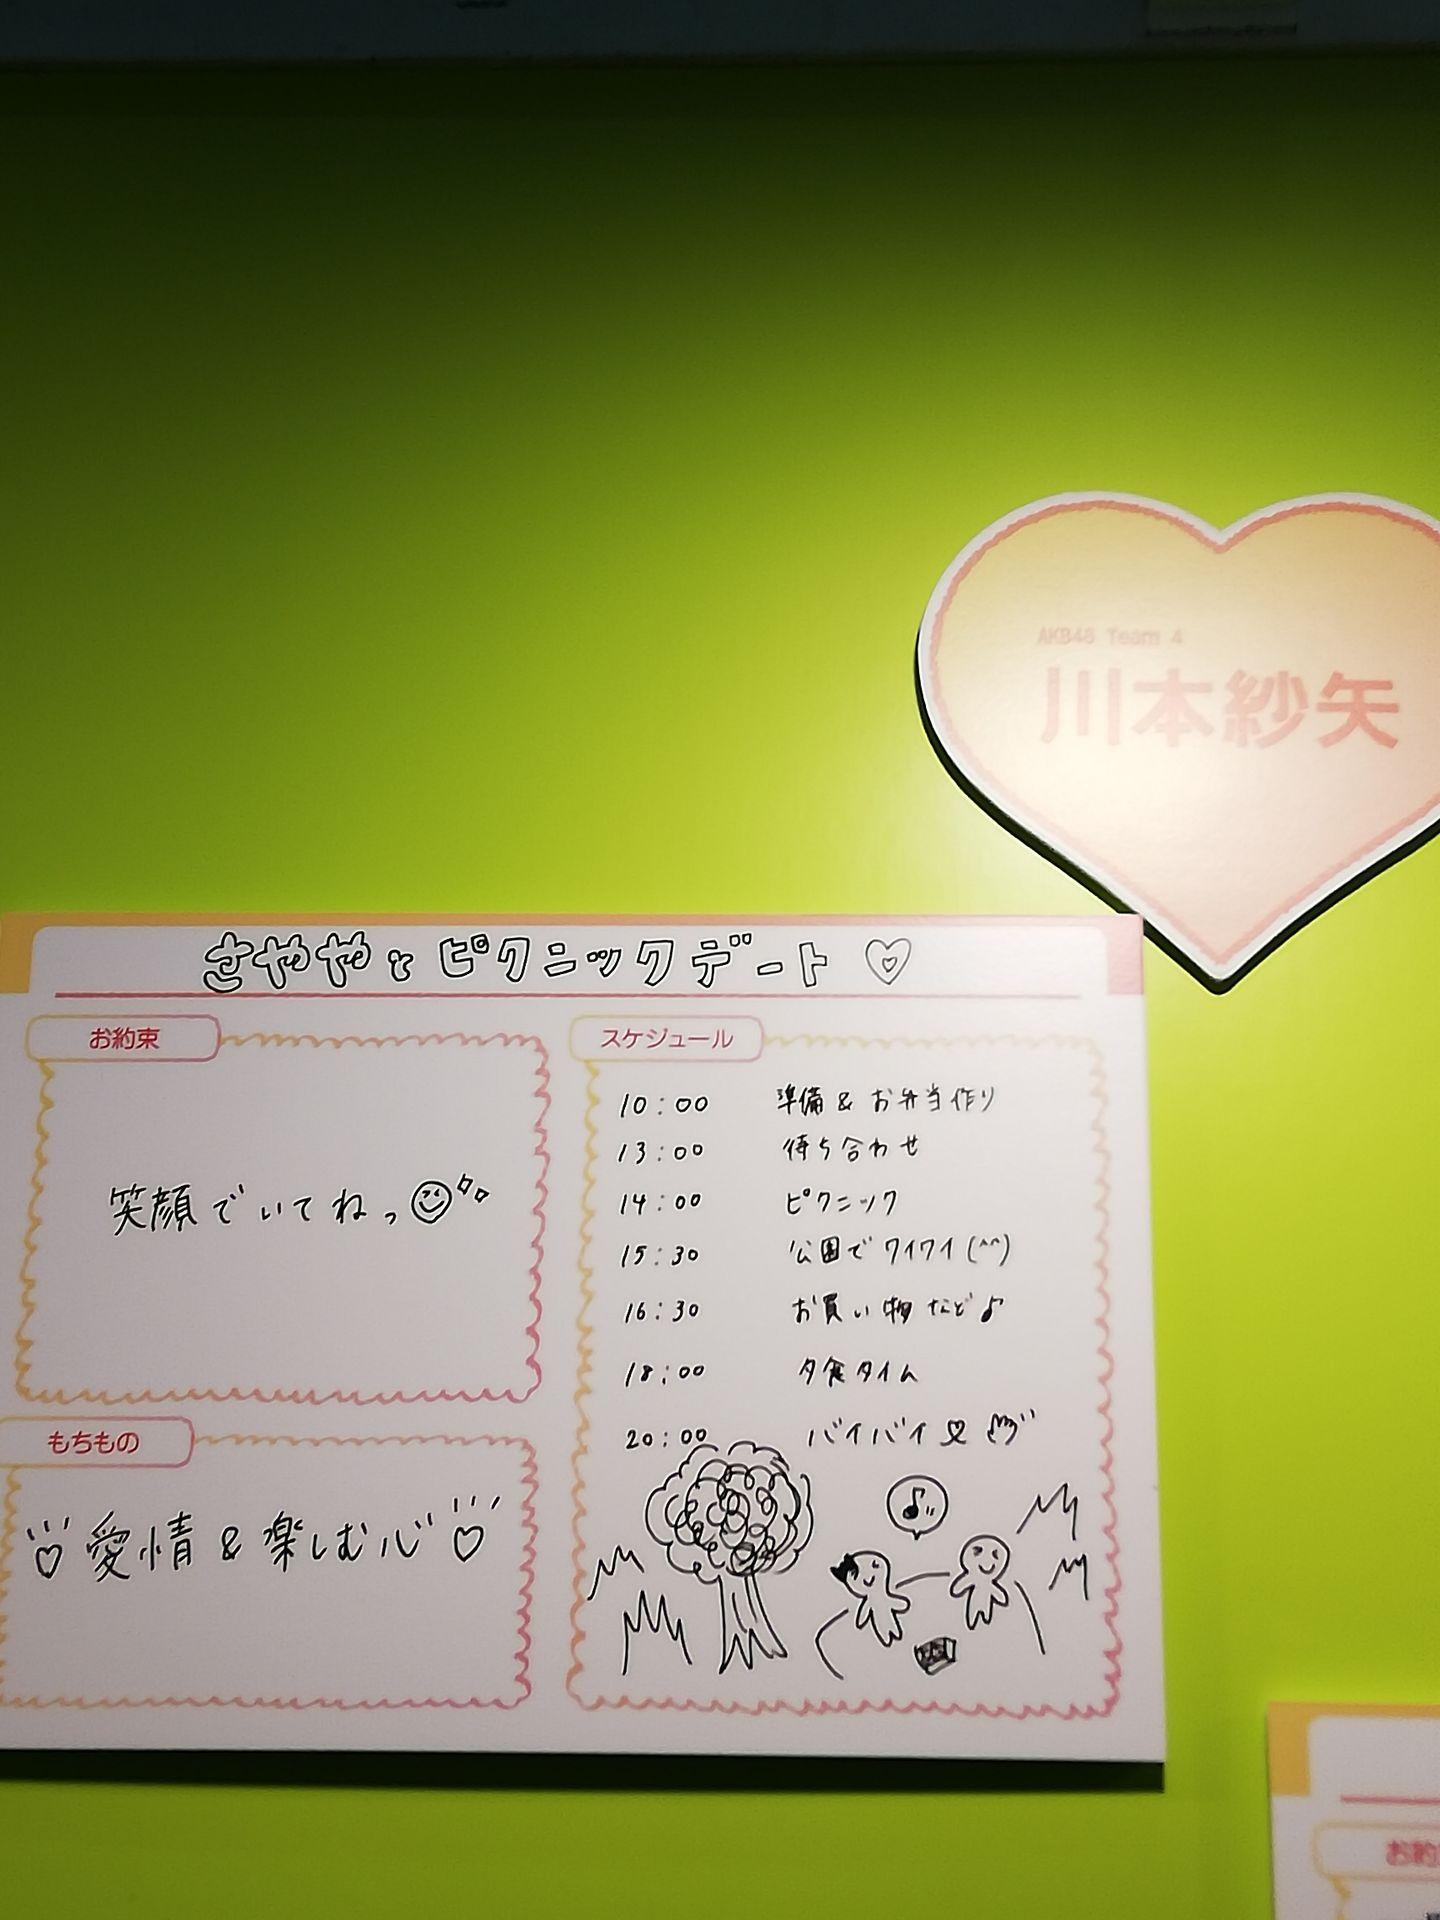 AKB48 Team 4
川本紗矢
さややとピクニックデート♡
お約束
笑顔でいてねっ
もちもの
愛情&楽しむ心
スケジュール
10:00 準備&お弁当作り
13:00 待ち合わせ
14:00 ピクニック
15:30 公園でワイワイ(^^)
16:30 お買い物など♪
18:00 夕食タイム
20:00 バイバイ
お約